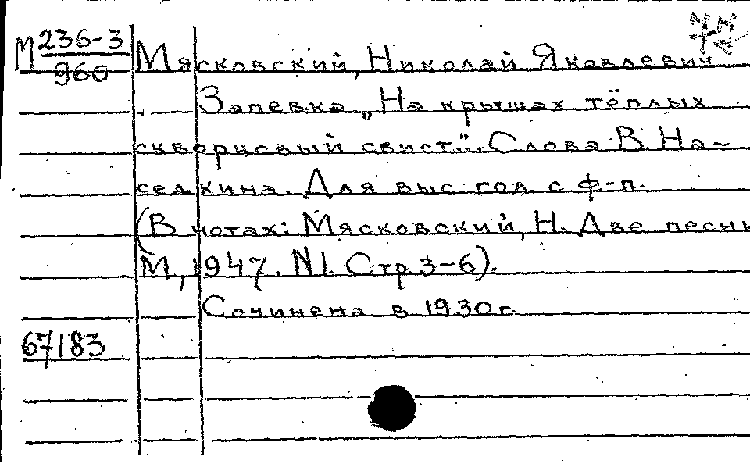 М 236-3
960
Мясковский, Николай Яковлевич
Запевка „На крышах тёплых
скворцовый свист". Слова В. На-
седкина. Для выс. гол. с ф-п.
(В нотах: Мясковский, Н. Две песни
М., 1947. N1. Стр. 3-6).
Сочинена в 1930 г.
67183